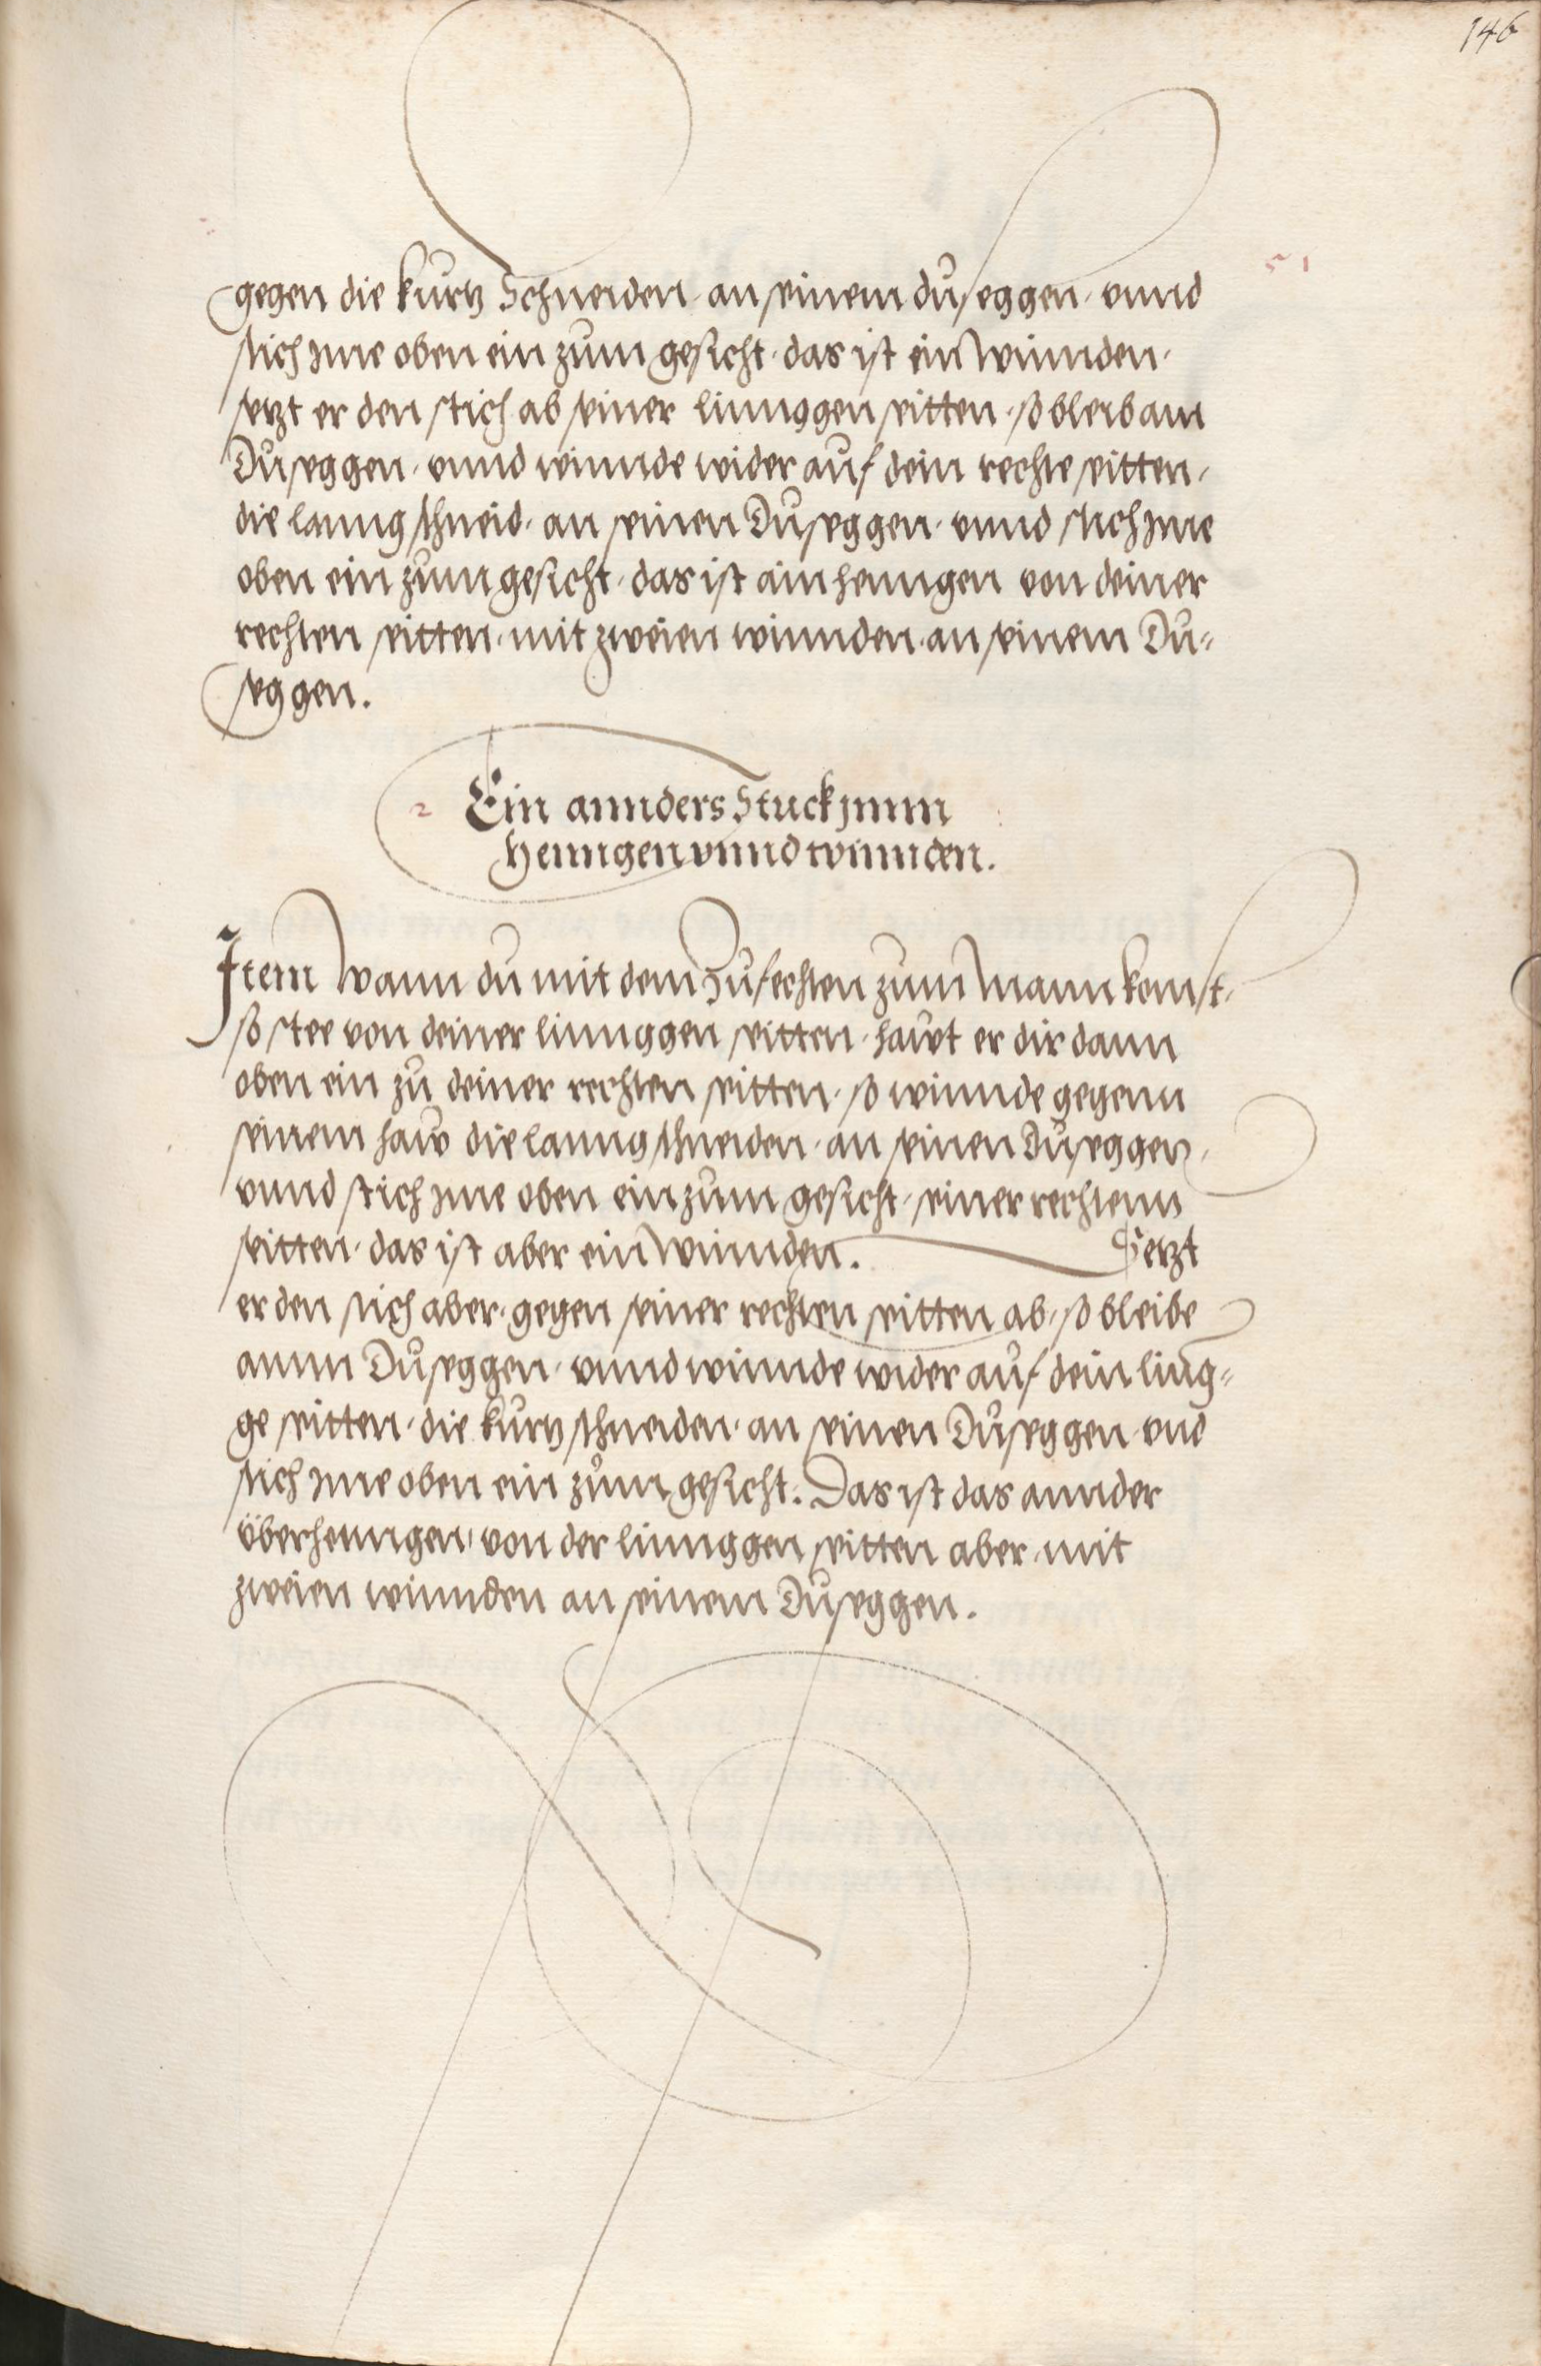 146
gegen die kurtz Schneiden, an seinem duseggen, vnnd
stich jme oben ein zum gesicht, das ist ein winnden,
setzt er den stich ab seiner linnggen seitten, so bleib am
Duseggen, vnnd winnde wider auf dein rechte seitten,
die lanng schneid, an seinen Duseggen, vnnd stich jme
oben ein zum gesicht, das ist ain henngen von deiner
rechten seitten, mit zweien winnden, an seinem Du=
seggen.
2 Ein annders Stuck jmm
Henngen vnnd winnden.
Item wann du mit dem Zufechten zum Mann komst,
so stee von deiner linnggen seitten, hawt er dir dann
oben ein zu deiner rechten seitten, so winnde gegenn
seinem haw die lanng schneiden, an seinen Duseggen,
vnnd stich jme oben ein zum gesicht, seiner rechtenn
seitten, das ist aber ein winnden. Setzt
er den stich aber, gegen seiner rechten seitten ab, so bleibe
amm Duseggen, vnnd winnde wider auf dein ling=
ge seitten, die kurtz schneiden, an seinen Duseggen, vnd
stich jme oben ein zum gesicht. Das ist das annder
überhenngen, von der linnggen seitten aber, mit
zweien winnden an seinem Duseggen.